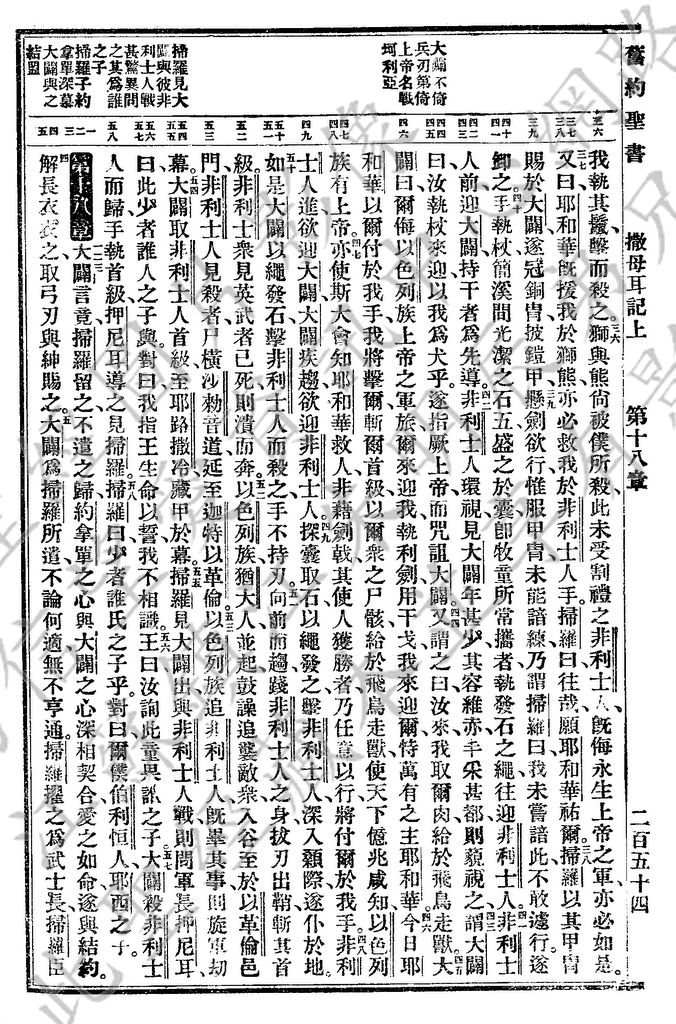 舊約聖書
撒母耳記上
第十八章
二百五十四
大闢不倚
兵刃第倚
上帝名戰
坷利亞
掃羅見大
闢與彼非
利士人戰
甚驚異問
之其爲誰
之子
掃羅子約
拿單深慕
大闢與之
結盟
我執其鬚擊而殺之獅與熊尚被僕所殺此未受割禮之非利士人旣侮永生上帝之軍亦必如是
又曰耶和華旣援我於獅熊亦必救我於非利士人手掃羅曰往哉願耶和華祐爾掃羅以其甲冑
賜於大闢遂冠銅冑披鎧甲懸劍欲行惟服甲冑未能諳練乃謂掃羅曰我未嘗諳此不敢遽行遂
卸之手執杖簡溪間光潔之石五盛之於囊卽牧童所常攜者執發石之繩往迎非利士人非利士
人前迎大闢持干者爲先導非利士人環視見大闢年甚少其容維赤丰采甚都則藐視之謂大闢
曰汝執杖來迎以我爲犬乎遂指厥上帝而咒詛大闢又謂之曰汝來我取爾肉給於飛鳥走獸大
闢曰爾侮以色列族上帝之軍旅爾來迎我執利劍用干戈我來迎爾恃萬有之主耶和華今日耶
和華以爾付於我手我將擊爾斬爾首級以爾衆之尸骸給於飛鳥走獸使天下億兆咸知以色列
族有上帝亦使斯大會知耶和華救人非藉劍戟其使人獲勝者乃任意以行將付爾於我手非利
士人進欲迎大闢大闢疾趨欲迎非利士人探囊取石以繩發之擊非利士人深入顙際遂仆於地
如是大闢以繩發石擊非利士人而殺之手不持刃向前而趨踐非利士人之身拔刃出鞘斬其首
級非利士衆見英武者已死則潰而奔以色列族猶大人並起鼓譟追襲敵衆入谷至於以革倫邑
門非利士人見殺者尸橫沙勑音道延至迦特以革倫以色列族追非利士人旣畢其事則旋軍劫
幕大闢取非利士人首級至耶路撒冷藏甲於幕掃羅見大闢出與非利士人戰則問軍長押尼耳
曰此少者誰人之子與對曰我指王生命以誓我不相識王曰汝詢此童畀誰之子大闢殺非利士
人而歸手執首級押尼耳導之見掃羅掃羅曰少者誰氏之子乎對曰爾僕伯利恒人耶西之子
第十八章大闢言竟掃羅留之不遣之歸約拿單之心與大闢之心深相契合愛之如命遂與結約
解長衣衣之取弓刃與紳賜之大闢爲掃羅所遣不論何適無不亨通掃羅擢之爲武士長掃羅臣